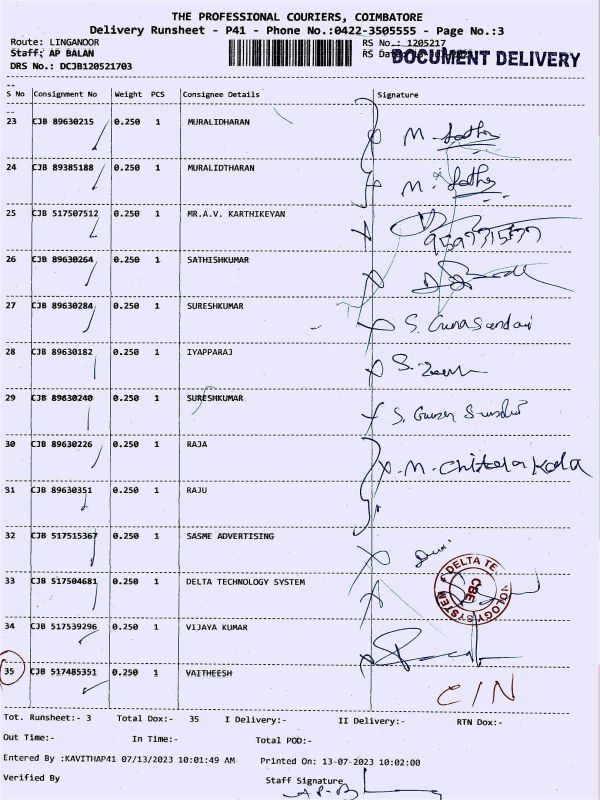 THE PROFESSIONAL COURIERS, COIMBATORE
Delivery Runsheet - P41 - Phone No.:0422-3505555 - Page No.:3
Route: LINGANOOR RS No.: 1205217
Staff: AP BALAN RS Da
DOCUMENT DELIVERY
DRS No.: DCJB120521703
S No Consignment No Weight PCS Consignee Details Signature
23 CJB 89630215 0.250 1 MURALIDHARAN M.
24 CJB 89385188 0.250 1 MURALIDTHARAN M.
25 CJB 517507512 0.250 1 MR.A.V. KARTHIKEYAN
26 CJB 89630264 0.250 1 SATHISHKUMAR
27 CJB 89630284 0.250 1 SURESHKUMAR S. Gunasundari
28 CJB 89630182 0.250 1 IYAPPARAJ S.
29 CJB 89630240 0.250 1 SURESHKUMAR S.
30 CJB 89630226 0.250 1 RAJA M. Chitra Kala
31 CJB 89630351 0.250 1 RAJU
32 CJB 517515367 0.250 1 SASME ADVERTISING
33 CJB 517504681 0.250 1 DELTA TECHNOLOGY SYSTEM
DELTA TE NOLOGY SYSTEM
CBE
34 CJB 517539296 0.250 1 VIJAYA KUMAR
35 CJB 517485351 0.250 1 VAITHEESH C/N
Tot. Runsheet:- 3 Total Dox:- 35 I Delivery:- II Delivery:- RTN Dox:-
Out Time:- In Time:- Total POD:-
Entered By :KAVITHAP41 07/13/2023 10:01:49 AM Printed On: 13-07-2023 10:02:00
Verified By Staff Signature